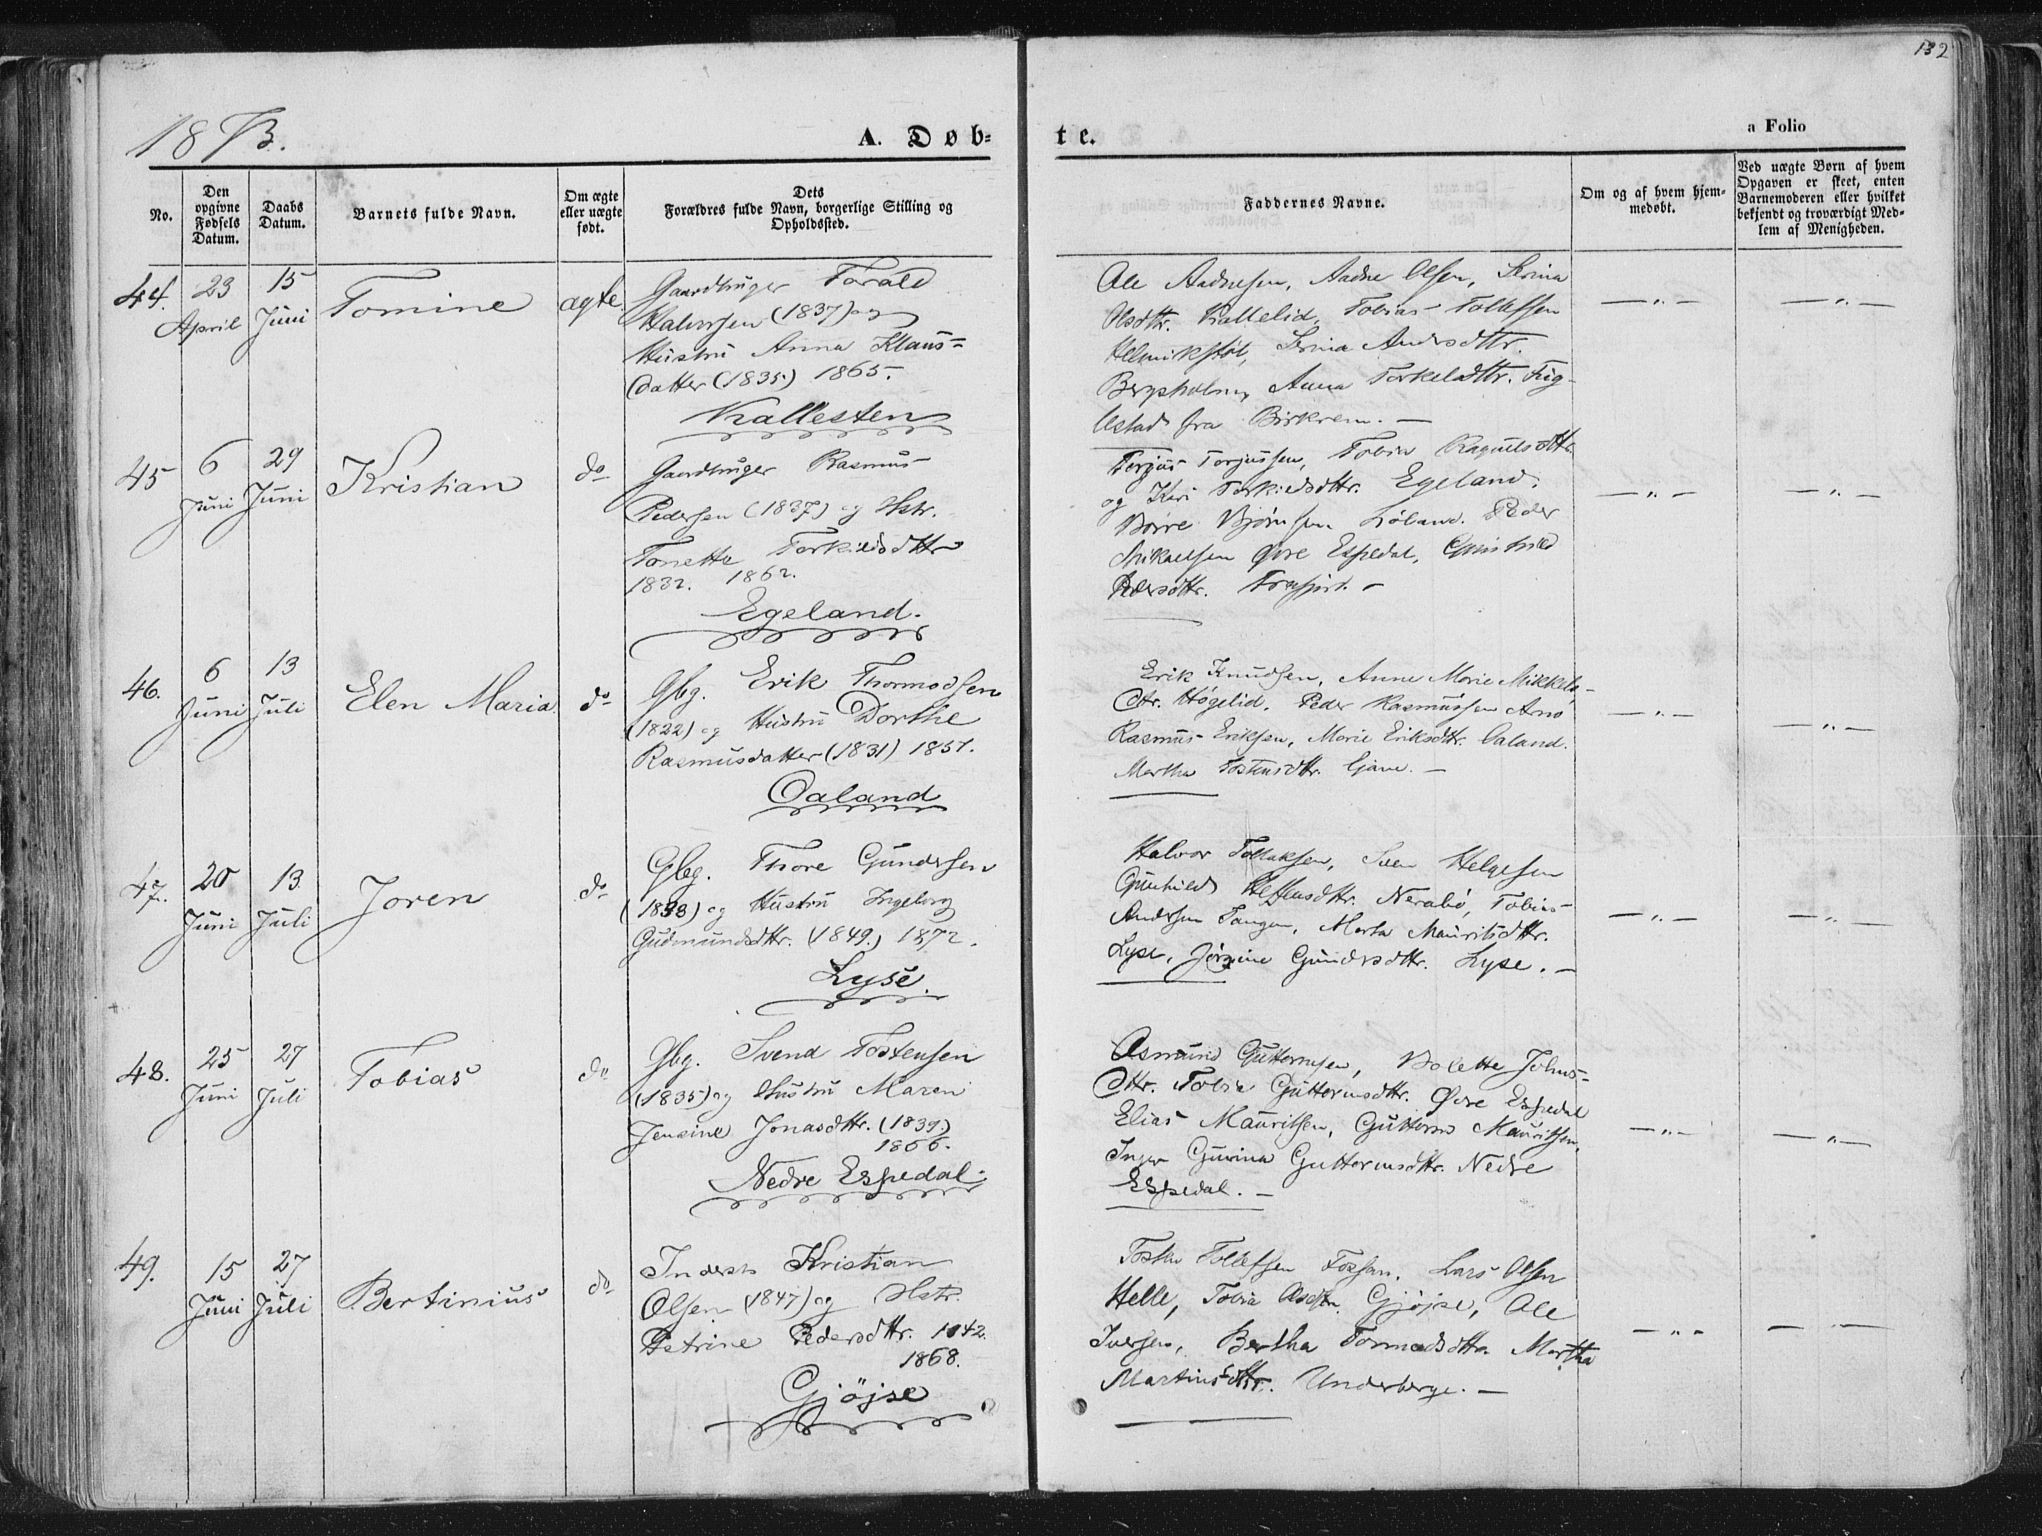 132
1873.
A. Døb-
te.
a Folio
No.
Den
opgivne
Fødsels
Datum.
Daabs
Datum.
Barnets fulde Navn.
Om ægte
eller uægte
født.
Dets
Forældres fulde Navn, borgerlige Stilling og
Opholdssted.
Faddernes Navne.
Om og af hvem hjem-
medøbt.
Ved uægte Børn af hvem
Opgaven er skeet, enten
Barnemoderen eller hvilket
bekjendt og troværdigt Med-
lem af Menigheden.
44.
23
April
15
Juni
Tomine
ægte
Gaardbruger Torald
Halvorsen (1837) og
Hustru Anna Klaus-
datter (1835) 1865.
Kallesten
Ole Aadnesen, Aadne Olsen, Serina
Olsdttr. Kallelid, Tobias Tollefsen
Helmikstøl, Serina Andersdttr.
Bergsholm, Anna Torkelsdttr. Fug-
lestad fra Birkrem. —
— „ — — „ —
45
6
Juni
29
Juni
Kristian
do
Gaardbruger Rasmus
Pedersen (1837) og Hstr.
Tonette Torkildsdttr
1832. 1862.
Egeland.
Torjus Torjussen, Tobia Raguelsdttr.
og Kari Torkildsdttr. Egeland.
Børre Bjørnsen Løland. Peder
Mikaelsen Øvre Espedal, Gunhild
Pedersdttr. —
— „ — — „ —
46.
6
Juni
13
Juli
Elen Maria
do
Gbg. Erik Thormodsen
(1822) og Hustru Dorthe
Rasmusdatter (1831) 1857.
Oaland
Erik Knudsen, Anne Marie Mikkels-
dtr. Høgelid. Peder Rasmussen Arnø
Rasmus Eriksen, Marie Eriksdttr. Oaland.
Martha Tostensdttr. Gjane. —
— „ — — „ —
47.
20
Juni
13
Juli
Joren
do
Gbg. Thore Gundersen
(1838) og Hustru Ingeborg
Gudmundsdttr. (1849.) 1872.
Lyse.
Halvor Tollaksen, Sven Helgesen
Gunhild Steffensdttr. Nerabø, Tobias
Andersen Tangen, Marta Mauritsdttr.
Lyse, Jørgine Gundersdttr. Lyse. —
— „ — — „ —
48.
25
Juni
27
Juli
Tobias
do
Gbg. Svend Tostensen
(1835) og Hustru Maren
Jensine Jonasdttr. (1839.)
1866.
Nedre Espedal.
Asmund Guttormsen, Bolette Johns-
dttr. Tobia Guttormsdttr. Øvre Espedal
Elias Mauritsen, Guttorm Mauritsen,
Inger Gurina Guttormsdttr. Nedre
Espedal. —
— „ — — „ —
49.
15
Juni
27
Juli
Bertinius
do
Inderst Kristian
Olsen (1847) og Hstr.
Petrine Pedersdttr. 1842.
1868.
Gjøjse
Tosten Tollefsen Fossan, Lars Olsen
Helle, Tobia Gjøjse, Ole
Iversen, Bertha Tormodsdttr. Martha
Martinsdttr. Underberge. —
— „ „ — „ —